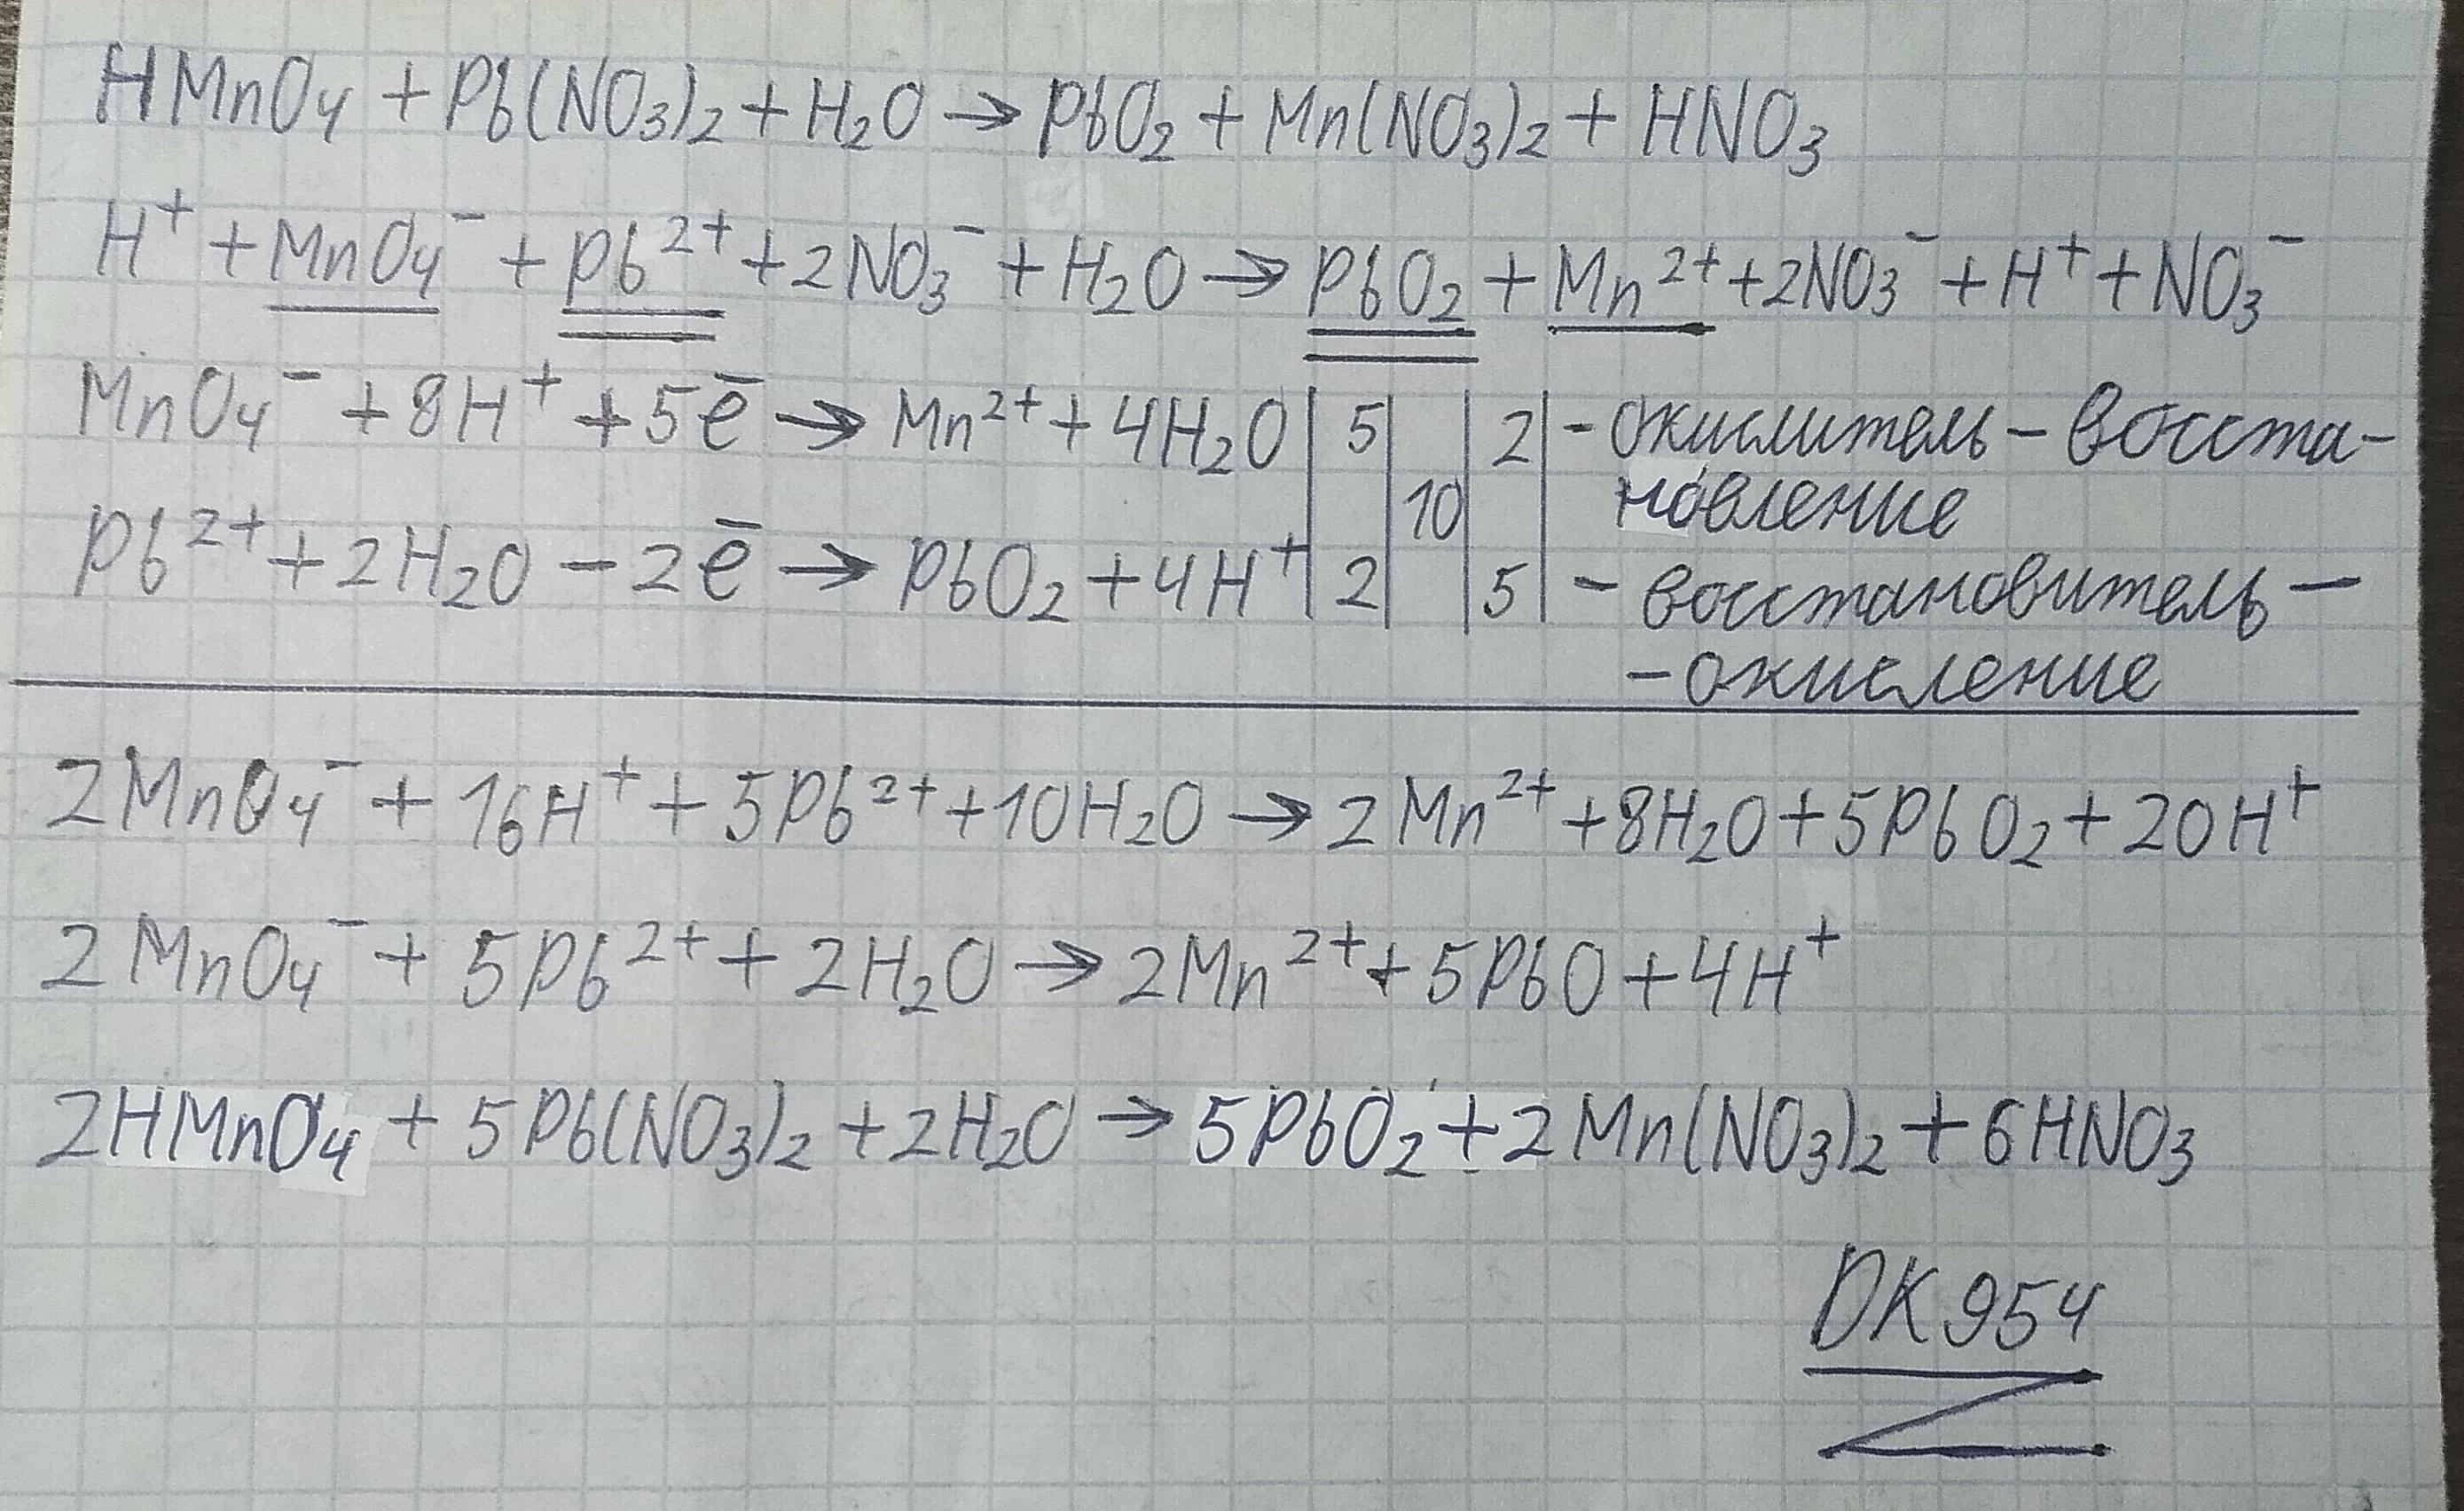 HMnO₄ + Pb(NO₃)₂ + H₂O → PbO₂ + Mn(NO₃)₂ + HNO₃
H⁺ + MnO₄⁻ + Pb²⁺ + 2NO₃⁻ + H₂O → PbO₂ + Mn²⁺ + 2NO₃⁻ + H⁺ + NO₃⁻
MnO₄⁻ + 8H⁺ + 5ē → Mn²⁺ + 4H₂O | 5 | | 2 | - окислитель - восста-
10 новление
Pb²⁺ + 2H₂O - 2ē → PbO₂ + 4H⁺ | 2 | | 5 | - восстановитель -
- окисление
2MnO₄⁻ + 16H⁺ + 5Pb²⁺ + 10H₂O → 2Mn²⁺ + 8H₂O + 5PbO₂ + 20H⁺
2MnO₄⁻ + 5Pb²⁺ + 2H₂O → 2Mn²⁺ + 5PbO + 4H⁺
2HMnO₄ + 5Pb(NO₃)₂ + 2H₂O → 5PbO₂ + 2Mn(NO₃)₂ + 6HNO₃
DK954